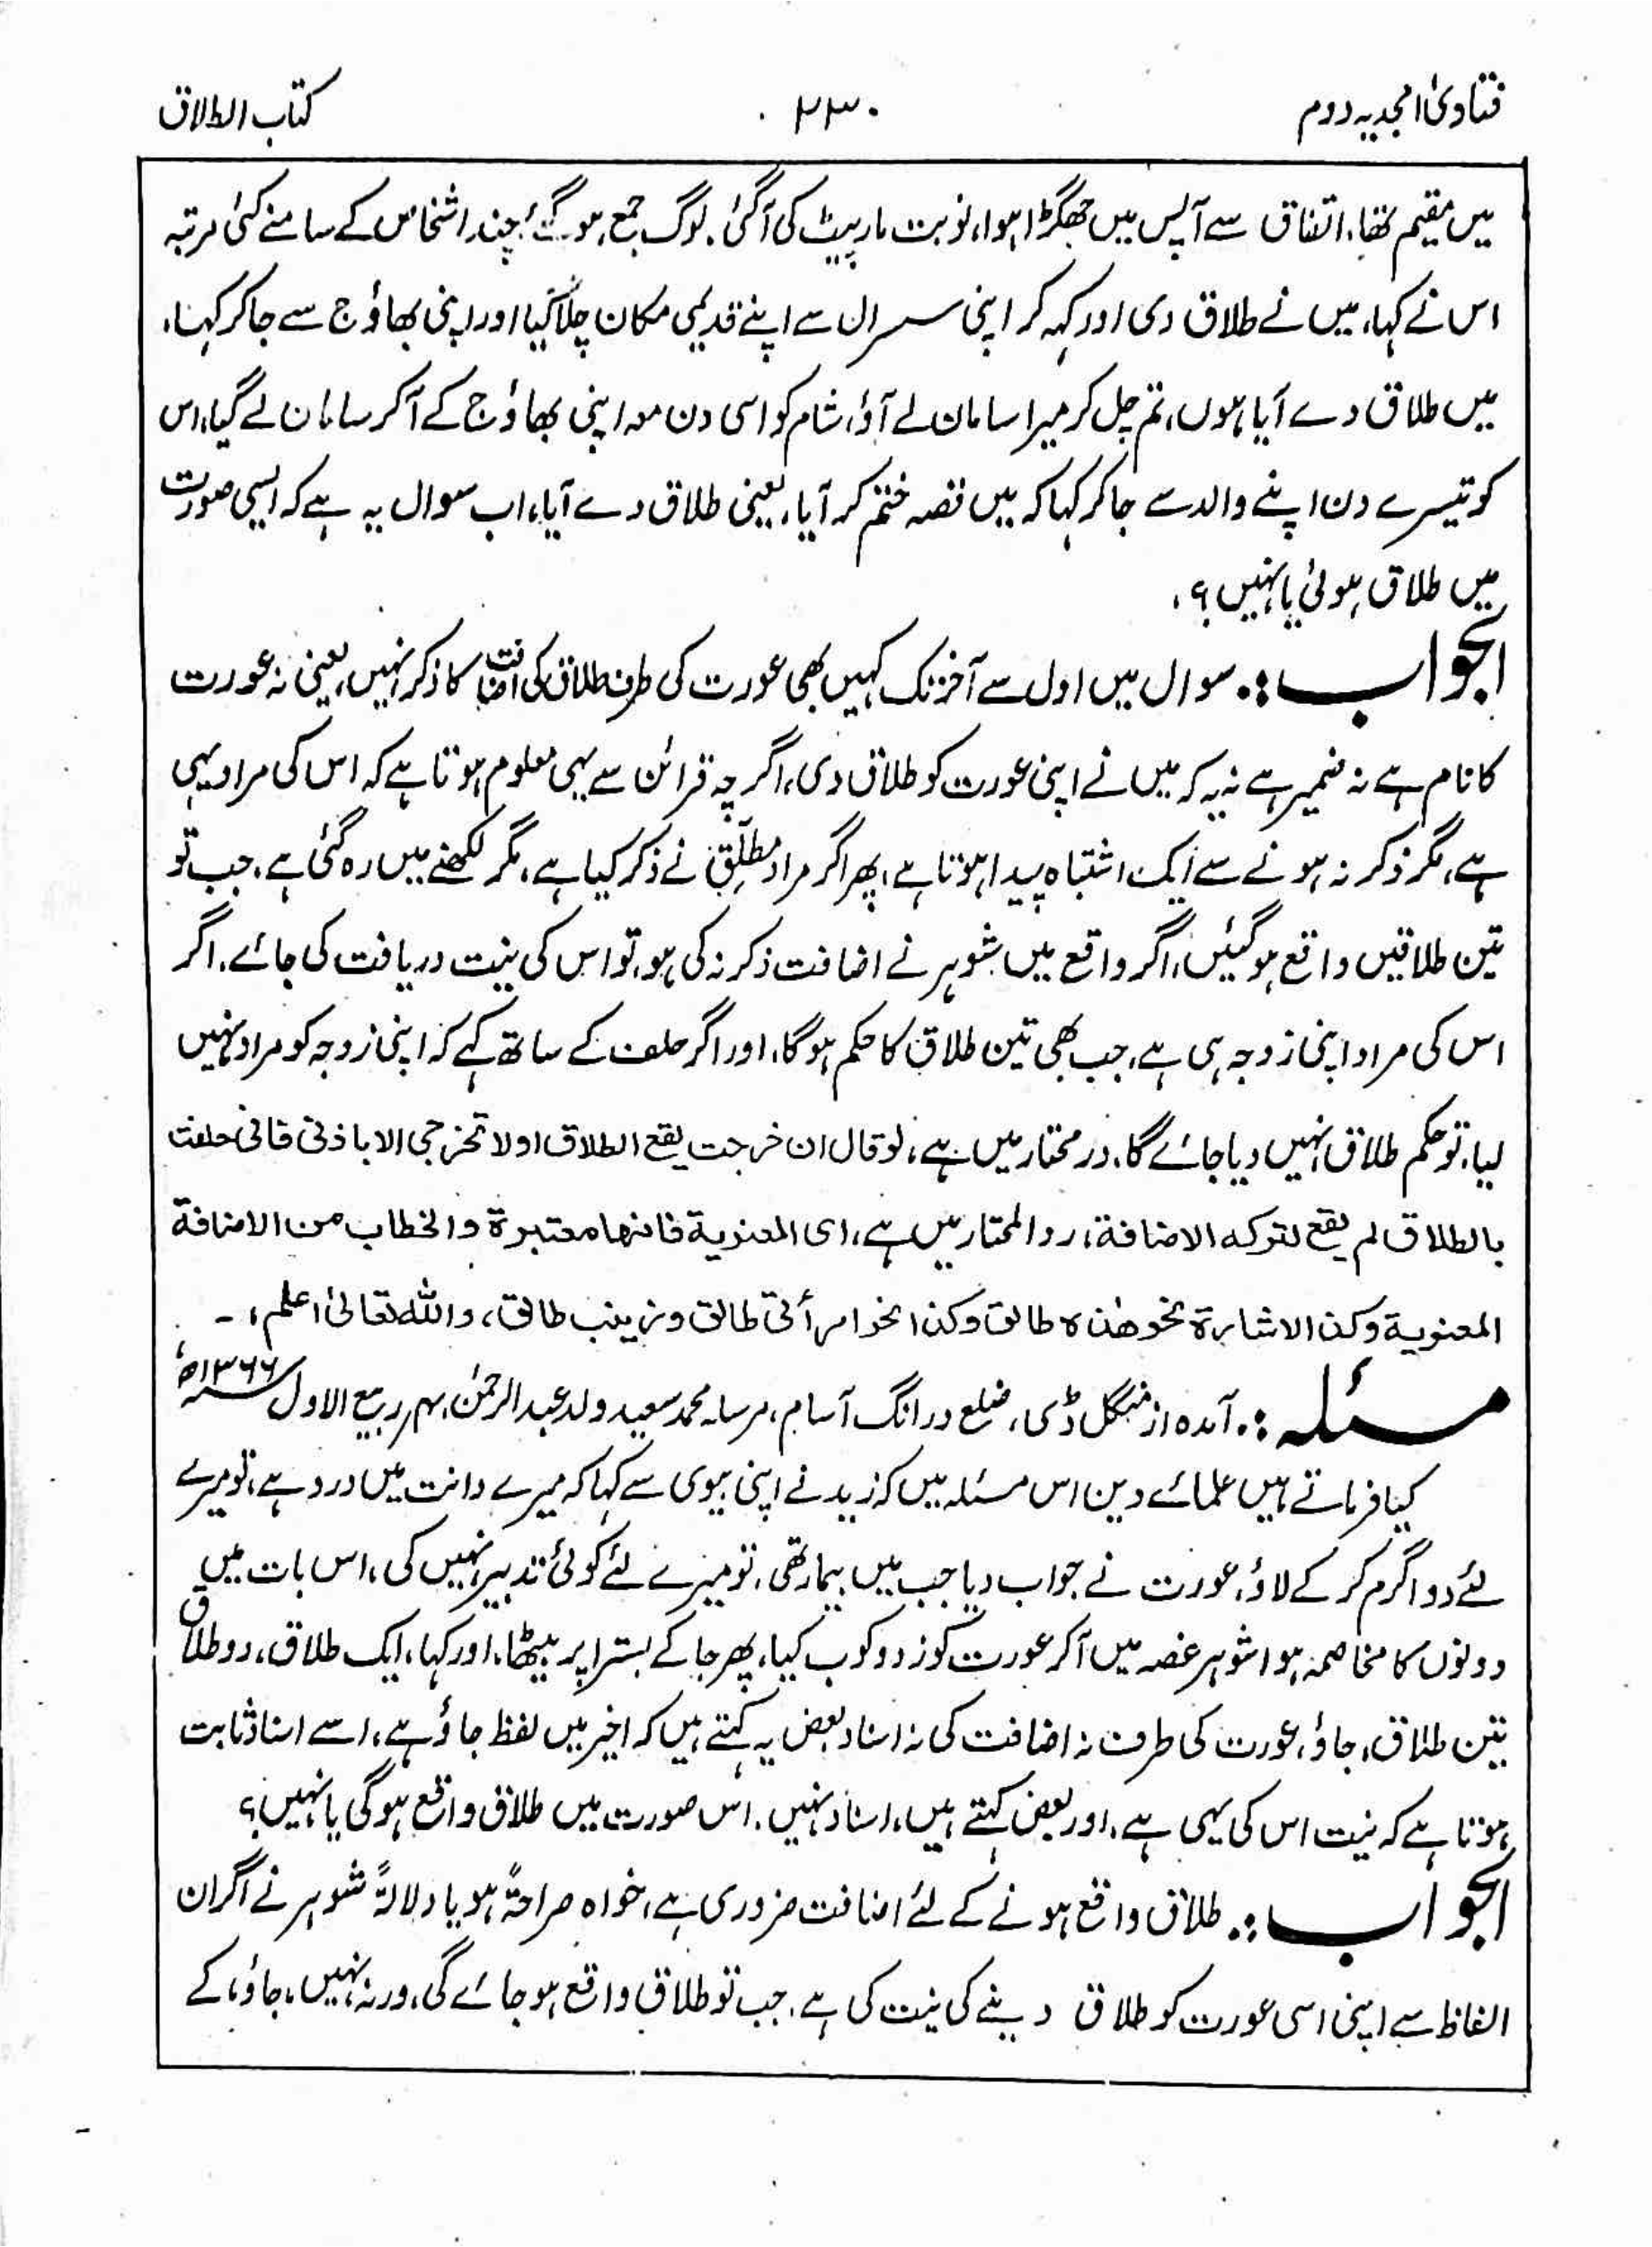 فتاویٰ امجدیہ دوم
۲۳۰
کتاب الطلاق
میں مقیم تھا، اتفاق سے آپس میں جھگڑا ہوا، نوبت مار پیٹ کی آگئی. لوگ جمع ہو گئے، چند اشخاص کے سامنے کئی مرتبہ
اس نے کہا، میں نے طلاق دی اور کہہ کر اپنی سسرال سے اپنے قدیمی مکان چلا گیا اور اپنی بھاؤج سے جا کر کہا،
میں طلاق دے آیا ہوں، تم چل کر میرا سامان لے آؤ، شام کو اسی دن معہ اپنی بھاؤج کے آکر سامان لے گیا، اس
کو تیسرے دن اپنے والد سے جا کر کہا کہ میں قصہ ختم کر آیا، یعنی طلاق دے آیا، اب سوال یہ ہے کہ ایسی صورت
میں طلاق ہوئی یا نہیں؟،
الجواب :. سوال میں اول سے آخر تک کہیں بھی عورت کی طرف طلاق کی اضافت کا ذکر نہیں، یعنی نہ عورت
کا نام ہے نہ ضمیر ہے نہ یہ کہ میں نے اپنی عورت کو طلاق دی، اگر چہ قرائن سے یہی معلوم ہوتا ہے کہ اس کی مراد یہی
ہے، مگر ذکر نہ ہونے سے ایک اشتباہ پیدا ہوتا ہے، پھر اگر مراد مطلِّق نے ذکر کیا ہے، مگر لکھنے میں رہ گئی ہے، جب تو
تین طلاقیں واقع ہو گئیں، اگر واقع میں شوہر نے اضافت ذکر نہ کی ہو، تو اس کی نیت دریافت کی جائے. اگر
اس کی مراد اپنی زوجہ ہی ہے، جب بھی تین طلاق کا حکم ہوگا، اور اگر حلف کے ساتھ کہے کہ اپنی زوجہ کو مراد نہیں
لیا، تو حکم طلاق نہیں دیا جائے گا، درمختار میں ہے، لو قال ان خرجت یقع الطلاق او لا تخرجی الا باذنی فانی حلفت
بالطلاق لم یقع لترکہ الاضافۃ، ردالمحتار میں ہے، ای المعنویۃ فانھا معتبرۃ والخطاب من الاضافۃ
المعنویۃ وکذا الاشارۃ نحو ھذہ طالق وکذا نحو امرأتی طالق وزینب طالق، واللہ تعالیٰ اعلم، -
مسئلہ :. آمدہ از منگل ڈی، ضلع درانگ آسام، مرسلہ محمد سعید ولد عبدالرحمٰن، ۴؍ ربیع الاول ۱۳۶۶ھ
کیا فرماتے ہیں علمائے دین اس مسئلہ میں کہ زید نے اپنی بیوی سے کہا کہ میرے دانت میں درد ہے، تو میرے
لئے دوا گرم کر کے لاؤ، عورت نے جواب دیا جب میں بیمار تھی، تو میرے لئے کوئی تدبیر نہیں کی، اس بات میں
دونوں کا مخاصمہ ہوا شوہر غصہ میں آکر عورت کو زدوکوب کیا، پھر جا کے بسترا پر بیٹھا، اور کہا، ایک طلاق، دو طلاق
تین طلاق، جاؤ، عورت کی طرف نہ اضافت کی نہ اسناد بعض یہ کہتے ہیں کہ اخیر میں لفظ جاؤ ہے، اسے اسناد ثابت
ہوتا ہے کہ نیت اس کی یہی ہے، اور بعض کہتے ہیں، اسناد نہیں. اس صورت میں طلاق واقع ہوگی یا نہیں؟
الجواب :. طلاق واقع ہونے کے لئے اضافت ضروری ہے، خواہ صراحۃً ہو یا دلالۃً شوہر نے اگر ان
الفاظ سے اپنی اسی عورت کو طلاق دینے کی نیت کی ہے. جب تو طلاق واقع ہو جائے گی، ورنہ نہیں، جاؤ، کے